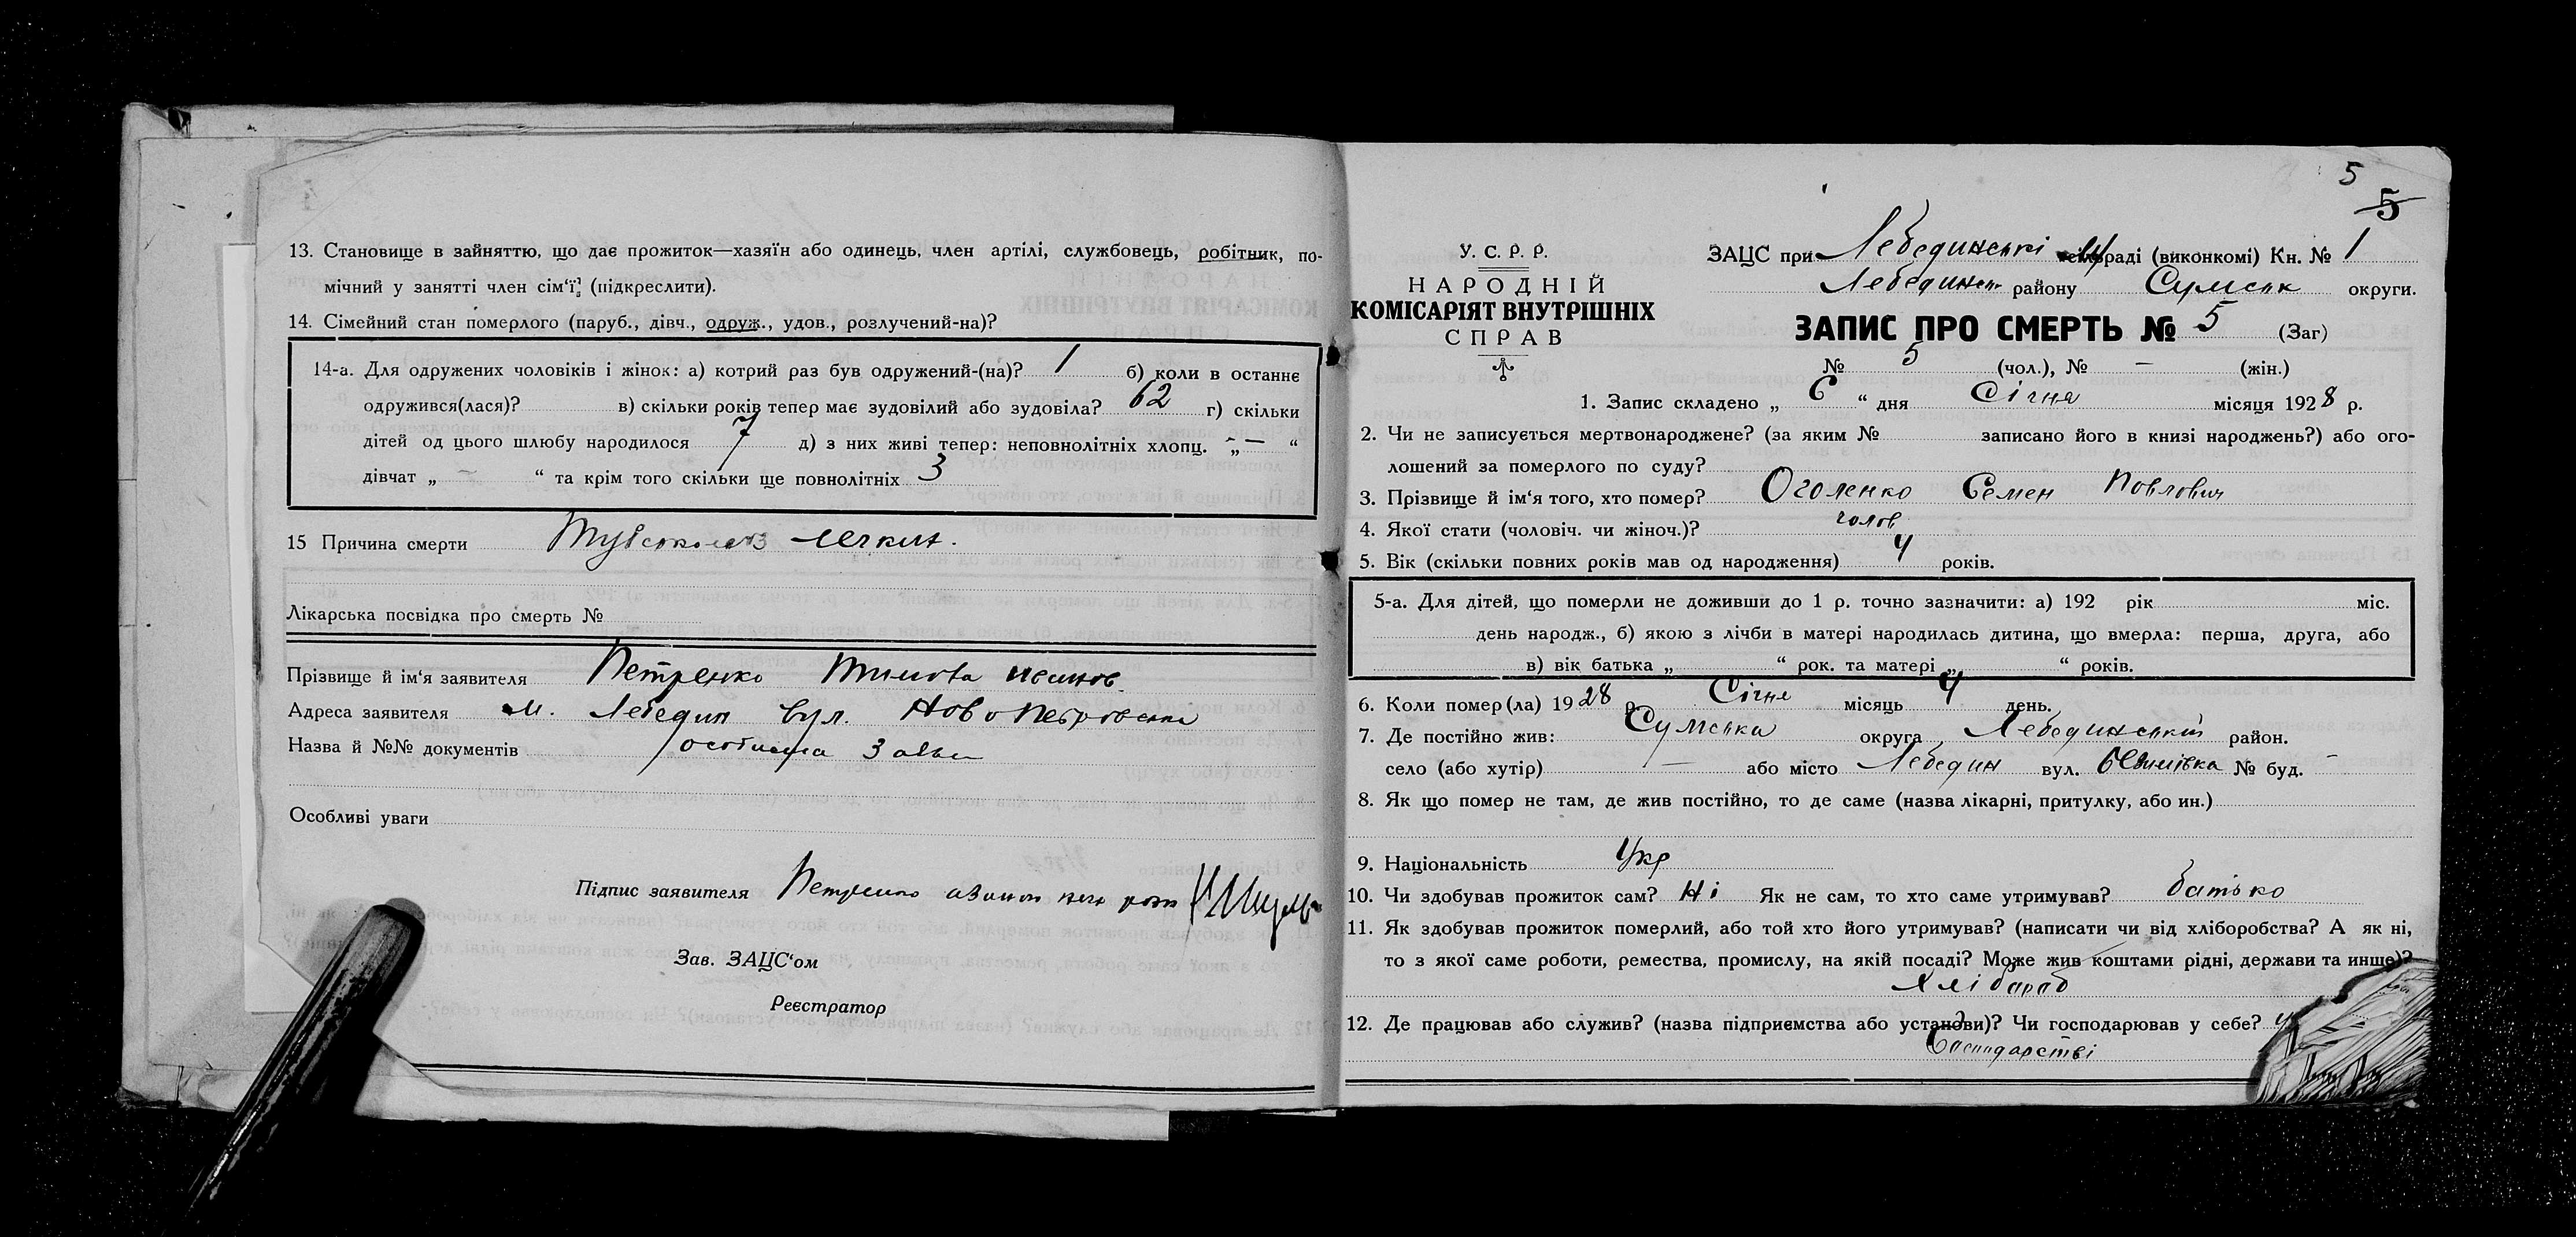 13. Становище в зайняттю, що дає прожиток—хазяїн або одинець, член артілі, службовець, робітник, по-
мічний у занятті член сім'ї (підкреслити).
14. Сімейний стан померлого (паруб., дівч., одруж., удов., розлучений-на)?
14-а. Для одружених чоловіків і жінок: а) котрий раз був одружений-(на)? 1 б) коли в останнє
одружився(лася)? в) скільки років тепер має зудовілий або зудовіла? 62 г) скільки
дітей од цього шлюбу народилося 7 д) з них живі тепер: неповнолітніх хлопц. „ — “
дівчат „ — “ та крім того скільки ще повнолітніх 3
15 Причина смерти Туберкольоз легких.
Лікарська посвідка про смерть №
Прізвище й ім'я заявителя Петренко
Адреса заявителя м. Лебедин вул. Ново Петровська
Назва й №№ документів особиста заява
Особливі уваги
Підпис заявителя Петренко
Зав. ЗАЦС'ом
Реєстратор
5
5
У. С. Р. Р.
НАРОДНІЙ
КОМІСАРІЯТ ВНУТРІШНІХ
СПРАВ
ЗАЦС при Лебединські раді (виконкомі) Кн. № 1
Лебединськ району Сумськ округи.
ЗАПИС ПРО СМЕРТЬ № 5 (Заг)
№ 5 (чол.), № — (жін.)
1. Запис складено „ 6 “ дня Січня місяця 1928 р.
2. Чи не записується мертвонароджене? (за яким № записано його в книзі народжень?) або ого-
лошений за померлого по суду?
3. Прізвище й ім'я того, хто помер? Оголенко Семен Повлович
4. Якої стати (чоловіч. чи жіноч.)? чолов
5. Вік (скільки повних років мав од народження) 4 років.
5-а. Для дітей, що померли не доживши до 1 р. точно зазначити: а) 192 рік міс.
день народж., б) якою з лічби в матері народилась дитина, що вмерла: перша, друга, або
в) вік батька „ “ рок. та матері „ “ років.
6. Коли помер(ла) 1928 р. Січня місяць 4 день.
7. Де постійно жив: Сумська округа Лебединський район.
село (або хутір) — або місто Лебедин вул. № буд. —
8. Як що помер не там, де жив постійно, то де саме (назва лікарні, притулку, або ин.)
9. Національність Укр
10. Чи здобував прожиток сам? Ні Як не сам, то хто саме утримував? батько
11. Як здобував прожиток померлий, або той хто його утримував? (написати чи від хліборобства? А як ні,
то з якої саме роботи, ремества, промислу, на якій посаді? Може жив коштами рідні, держави та инше)?
Хлібароб
12. Де працював або служив? (назва підприємства або установи)? Чи господарював у себе? у
Господарстві